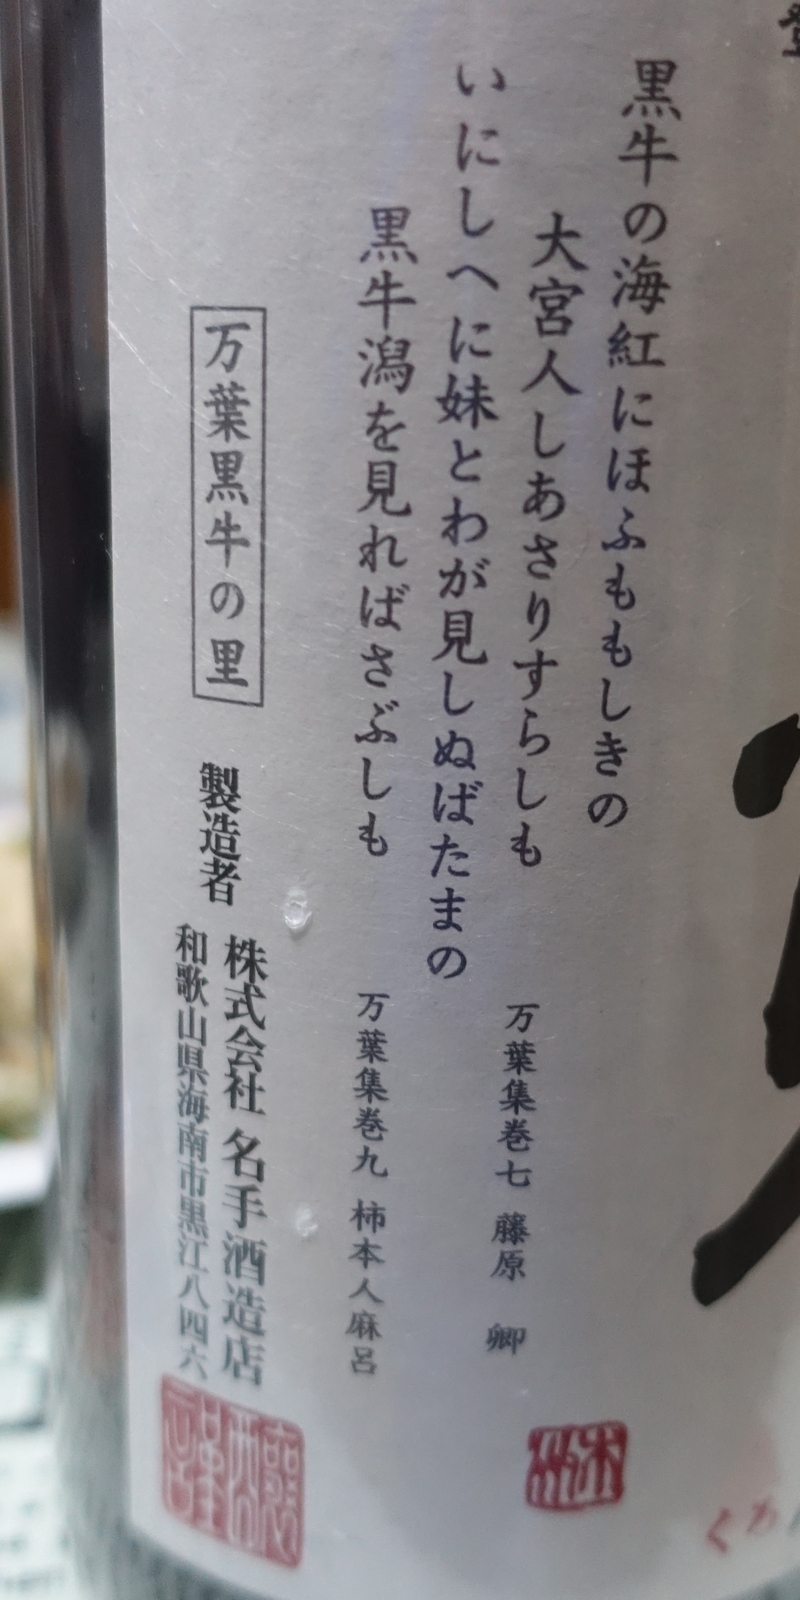 黒牛の海紅にほふももしきの
大宮人しあさりすらしも
万葉集巻七 藤原 卿
いにしへに妹とわが見しぬばたまの
黒牛潟を見ればさぶしも
万葉集巻九 柿本人麻呂
万葉黒牛の里
製造者
株式会社 名手酒造店
和歌山県海南市黒江八四六
謹醸
くろ